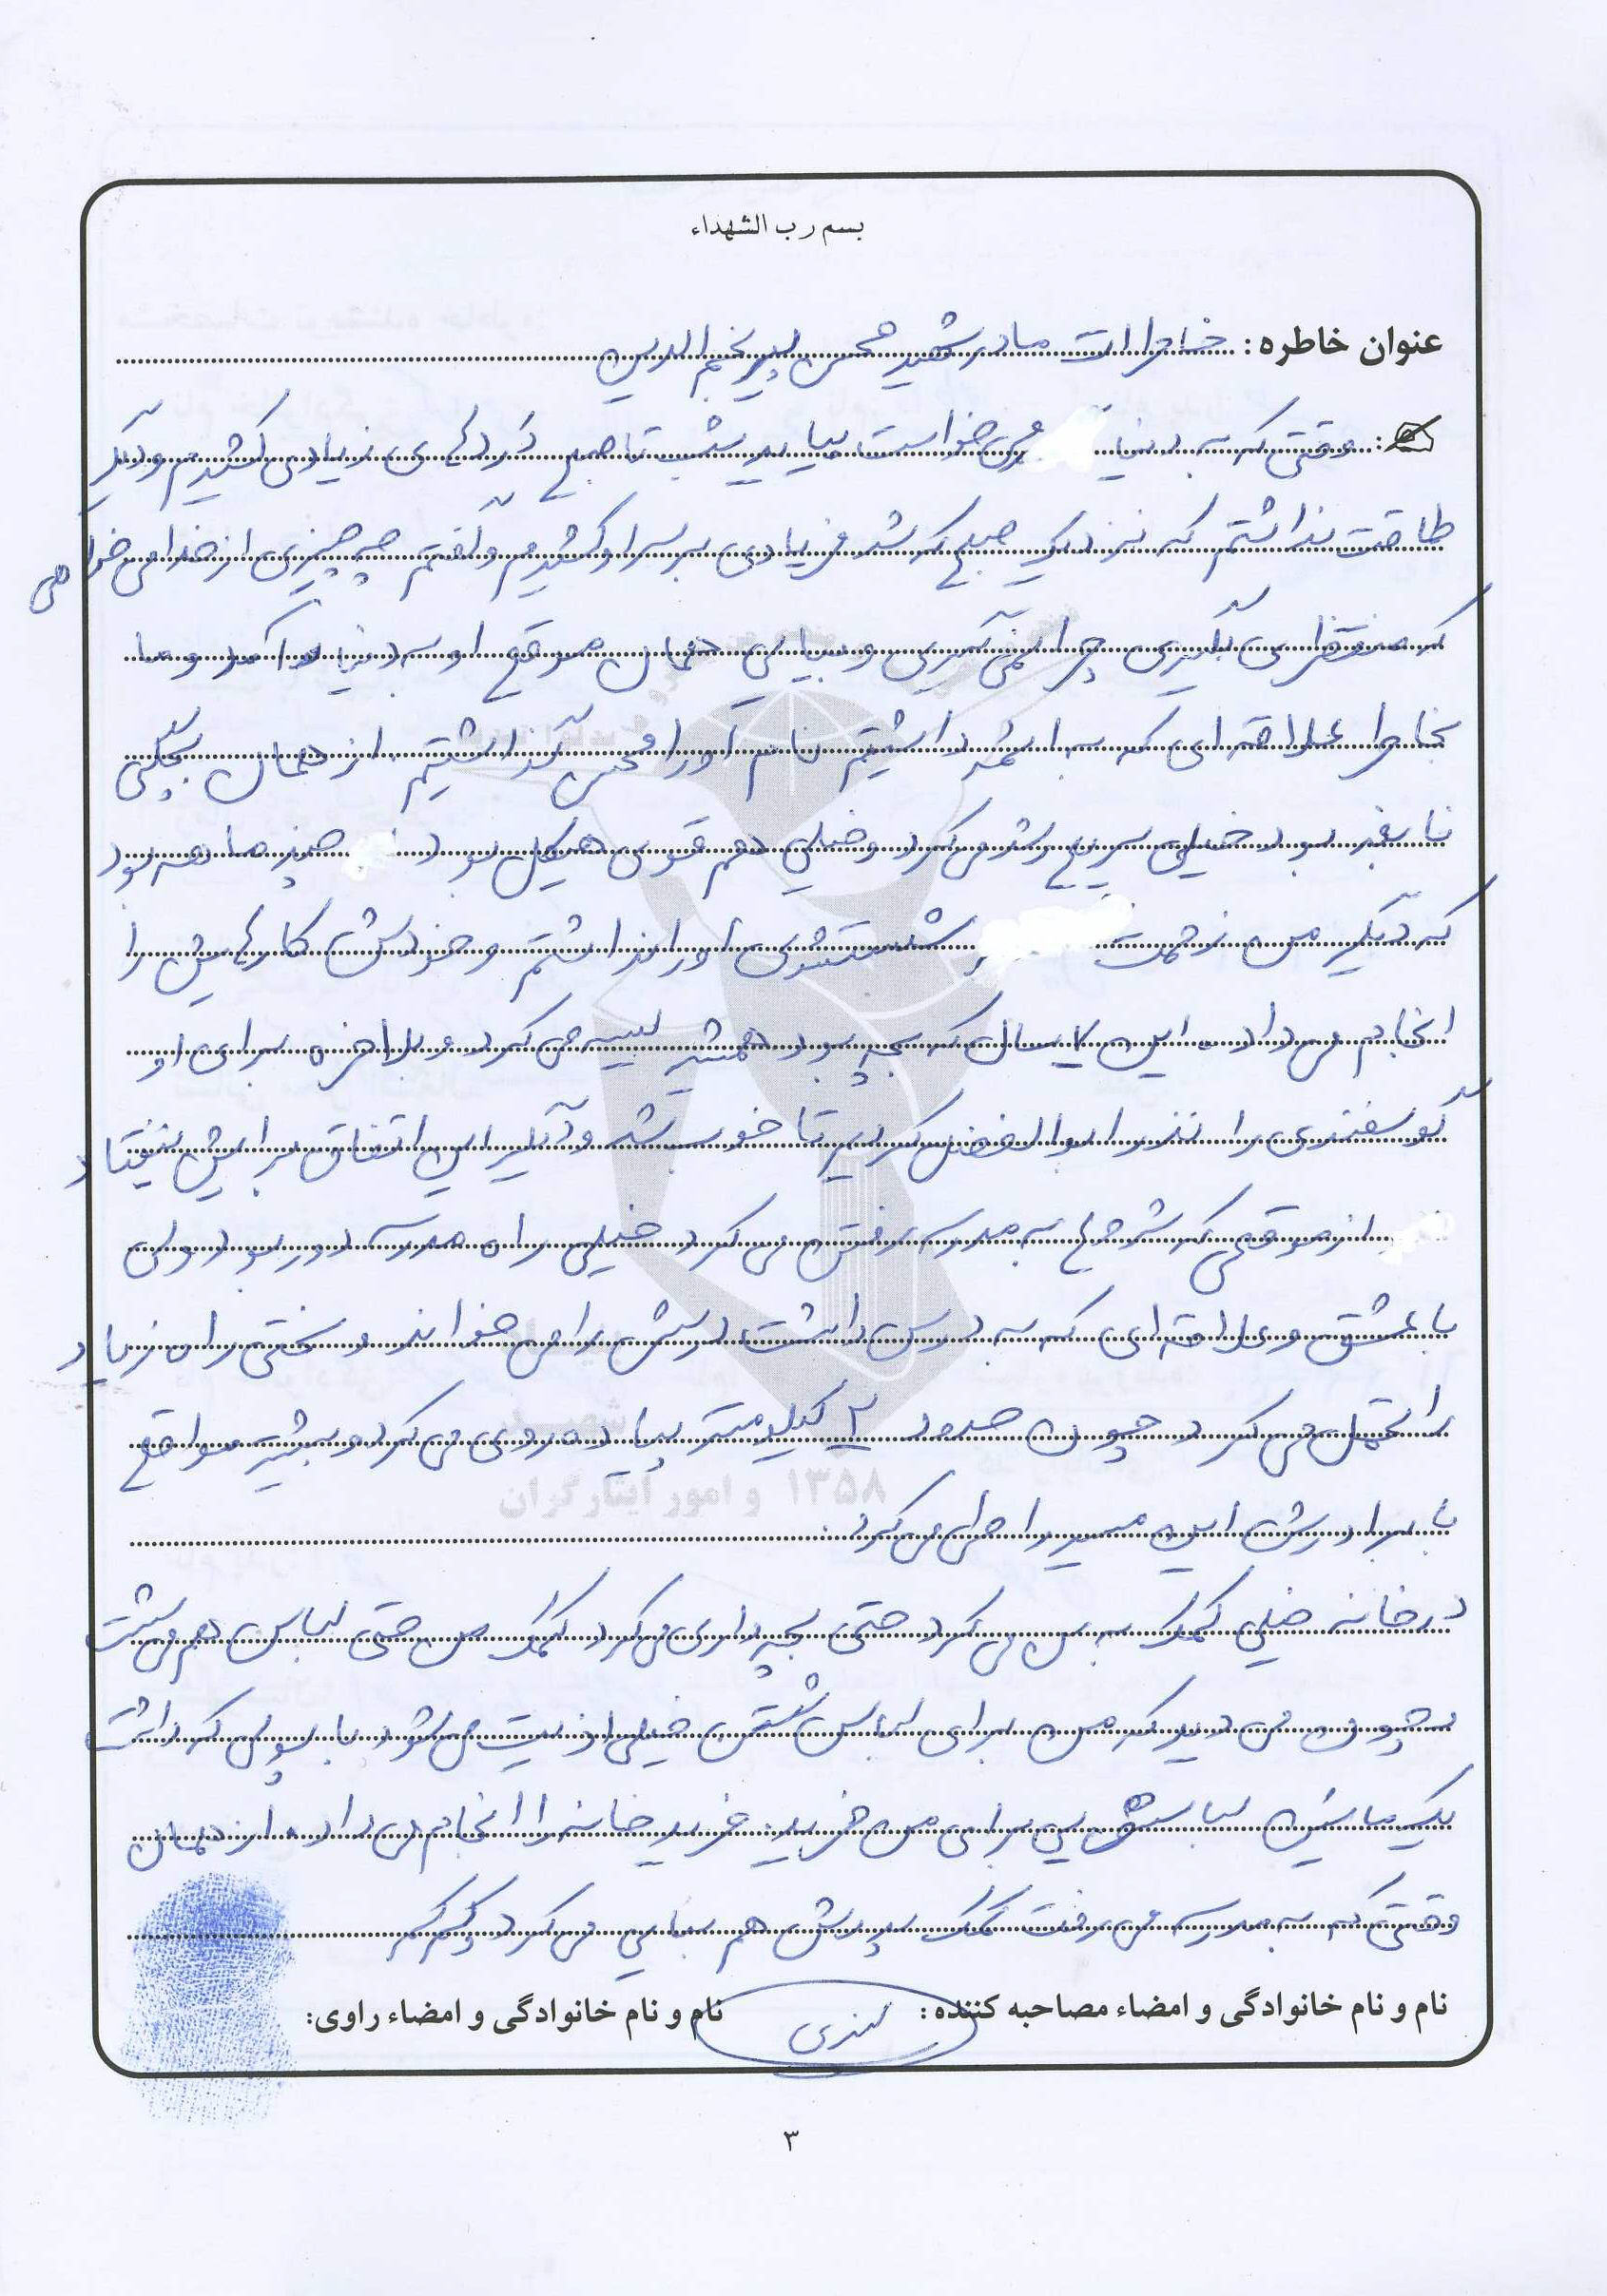 بسم رب الشهداء
عنوان خاطره: خاطرات مادر شهید محسن پیر نجم الدین
وقتی که به دنیا می خواست بیاید شب تا صبح دردهای زیادی کشیدم و دیگر
طاقت نداشتم که نزدیک صبح که شد فریادی بر سر او کشیدم و گفتم چه چیزی از خدا می خواهی
که منتظری بگیری چرا نمی گیری و بیایی همان موقع او به دنیا آمد و ما
بخاطر علاقه ای که به ائمه داشتیم نام او را محسن گذاشتیم از همان بچگی
نابغه بود خیلی سریع رشد می کرد و خیلی هم قوی هیکل بود چند ماهه بود
که دیگر من زحمت شستشوی او را نداشتم و خودش کارهایش را
انجام می داد. این ۷ سال که بچه بود همیشه می کرد و بلاخره برای او
گوسفندی را نذر ابوالفضل کردیم تا خوب شد و دیگر این اتفاق برایش نیفتاد
از موقعی که شروع به مدرسه رفتن می کرد خیلی راه مدرسه دور بود ولی
با عشق و علاقه ای که به درس داشت درسش را می خواند و سختی راه زیاد
را تحمل می کرد چون حدود ۲ کیلومتر پیاده روی می کرد و بیشتر مواقع
با برادرش این مسیر را طی می کرد.
در خانه خیلی کمک به من می کرد حتی بچه داری می کرد کمک من حتی لباس هم می شست
چون می دید که من برای لباس شستن خیلی اذیت می شود با پولی که داشت
یک ماشین لباسشویی برای من خرید. خرید خانه را انجام می داد. از همان
وقتی که به مدرسه می رفت کمک پدرش هم بنایی می کرد
نام و نام خانوادگی و امضاء مصاحبه کننده:
نام و نام خانوادگی و امضاء راوی:
۱۳۵۸ و امور ایثارگران
۳